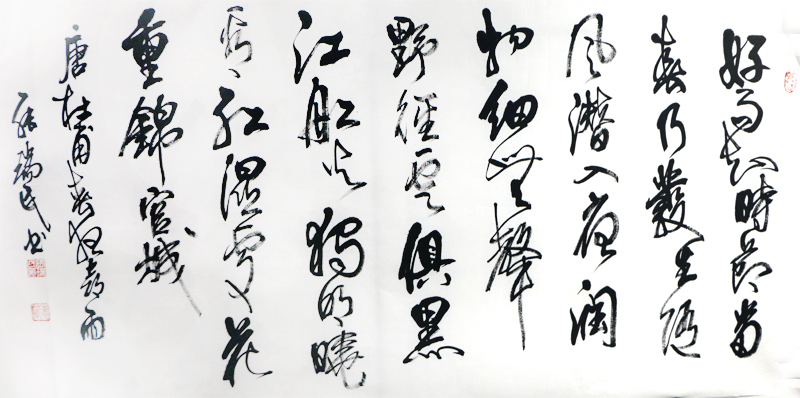 好雨知時節當
春乃發生随
风潜入夜润
物细無聲
野徑雲俱黑
江船火獨明曉
看红濕處花
重錦官城
唐杜甫春夜喜雨
张瑞民书